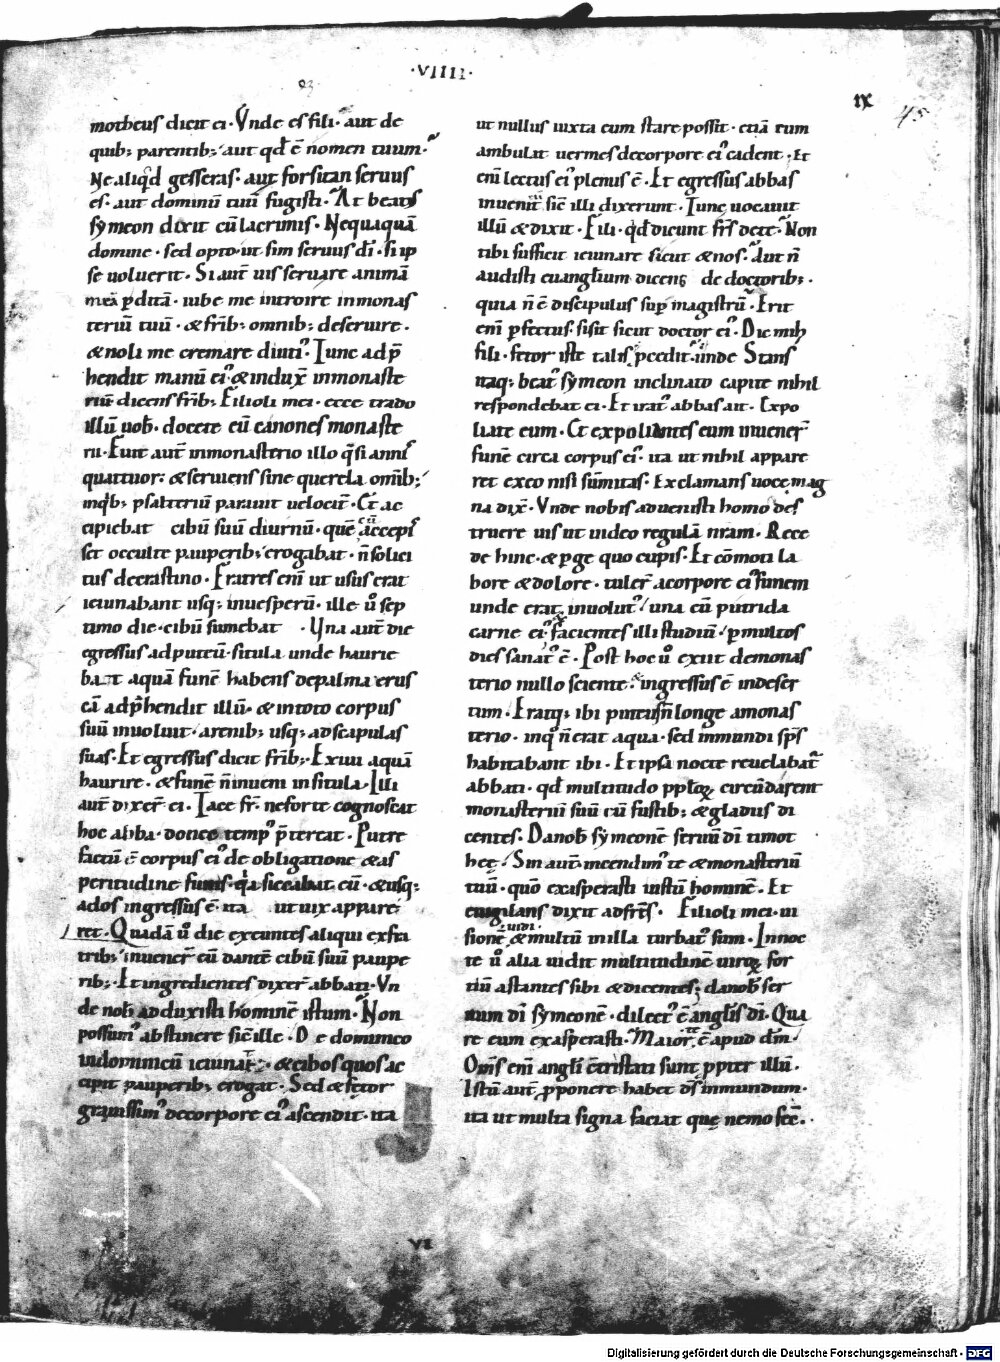 ·VIIII·
IX
45
motheus dicit ei · Vnde es fili · aut de
quib; parentib; · aut qd̄ ē nomen tuum ·
Ne aliqͥd gesseras · aut forsitan seruus
es · aut dominū tuū fugisti · At beatꝰ
symeon dixit cū lacrimis · Nequaquā
domine · sed opto ut sim seruus dī · si ip
se uoluerit · Si aut̄ uis seruare animā
meā ꝑditā · iube me introire in monas
teriū tuū · & frīb; omnib; deseruire ·
& noli me cremare diutiꝰ · Tunc adp̄
hendit manū eiꝰ & indux̄ in monaste
riū dicens frīb; · Filioli mei · ecce trado
illū uob̄ · docete eū canones monaste
rii · Fuit aut̄ in monasterio illo qͣsi annꝭ
quattuor · & seruiens sine querela omīb; ·
in qͥb; psalteriū parauit uelocit̄ · Et ac
cipiebat cibū suū diurnū · quē acceꝑ
set occulte pauperib; erogabat · n̄ solici
tus de crastino · Fratres enī ut usus erat
ieiunabant usq; in uesperū · ille u̇ sep
timo die · cibū sumebat · Vna aut̄ die
egressus ad puteū · situla unde haurie
bant aquā funē habens de palma uerus
cā adp̄hendit illū · & in toto corpus
suū inuoluit · a renib; usq; ad scapulas
suas · Et egressus dicit frīb; · Exiui aquā
haurire · & funē n̄ inueni in situla · Illi
aut̄ dixer̄ ei · Tace fr̄ · ne forte cognoscat
hoc abba · donec tempꝰ p̄tereat · Putre
factū ē corpus eiꝰ de obligatione & as
peritudine funis · qͥa siccabat eū · & usq;
ad os ingressus ē · ita ut uix appare
ret · Quadā u̇ die exeuntes aliqui ex fra
trib; · inuener̄ eū dantē cibū suū paupe
rib; · Et ingredientes dixer̄ abbati · Vn
de nob̄ adduxisti hominē istum · Non
possumꝰ abstinere sic̄ ille · De dominico
in dominicū ieiunat · & cibos quos ac
cipit pauperib; erogat · Sed & fetor
grauissimꝰ de corpore eiꝰ ascendit · ita
ut nullus iuxta eum stare possit · etiā cum
ambulat uermes de corpore eiꝰ cadent · Et
enī lectus eiꝰ plenus ē · Et egressus abbas
inuenit sic̄ illi dixerunt · Tunc uocauit
illū & dixit · Fili · qͥd dicunt fr̄s de te · Non
tibi sufficit ieiunare sicut & nos · Aut n̄
audisti euangelium dicens de doctorib; ·
quia n̄ ē discipulus suꝑ magistrū · Erit
enī ꝑfectus · si sit sicut doctor eiꝰ · Dic mih
fili · fetor iste talis ꝓcedit unde · Stans
itaq; beatꝰ symeon inclinato capite nihil
respondebat ei · Et iratꝰ abbas ait · Expo
liate eum · Et expoliantes eum inuener̄
funē circa corpus eiꝰ · ita ut nihil appare
ret ex eo nisi sūmitas · Exclamans uoce mag
na dix̄ · Vnde nobis aduenisti homo des
truere uis ut uideo regulā nr̄am · Rece
de hinc · & ꝑge quo cupis · Et cōmoti la
bore & dolore · tuler̄ a corpore eiꝰ funem
unde erat inuolutꝰ · una cū putrida
carne eiꝰ · facientes illi studiū · ꝑ multos
dies sanatꝰ ē · Post hoc u̇ exiit de monas
terio nullo sciente · & ingressus ē in deser
tum · Eratq; ibi puteus n̄ longe a monas
terio · in qͦ n̄ erat aqua · sed inmundi sp̄s
habitabant ibi · Et ipsa nocte reuelabatꝰ
abbati · qd̄ multitudo pplōꝝ circūdarent
monasteriū suū cū fustib; & gladiis di
centes · Da nob̄ symeonē seruū dī timot
hee · Sin aut̄ incendimꝰ te & monasteriū
tuū · quō exasperasti iustū hominē · Et
euigilans dixit ad fr̄s · Filioli mei · ui
sionē uidi & multū in illa turbatꝰ sum · In noc
te u̇ alia uidit multitudinē uiroꝝ for
tiū astantes sibi & dicentes; da nob̄ ser
uum dī symeonē · dilectꝰ ē angl̄is dī · Qua
re eum exasperasti · Maior te ē apud dm̄ ·
Om̄s enī angli c̄tristati sunt ꝓpter illū ·
Istū aut̄ p̄ponere habet ds̄ in mundum ·
ita ut multa signa faciat que nemo fec̄ ·
VI
Digitalisierung gefördert durch die Deutsche Forschungsgemeinschaft - DFG